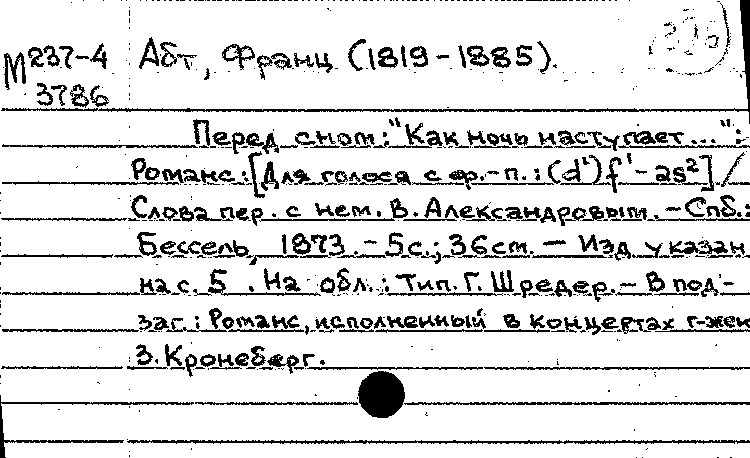 М 237-4 Абт, Франц (1819-1885).
3786
Перед сном: "Как ночь наступает...":
Романс: [Для голоса с фр.-п.: (d¹)f¹-as²] /
Слова пер. с нем. В. Александровым. - Спб.:
Бессель, 1873. - 5с.; 36см. - Изд указан
на с. 5. На обл.: Тип. Г. Шредер. - В под-
заг.: Романс, исполненный в концертах г-жен
З. Кронеберг.